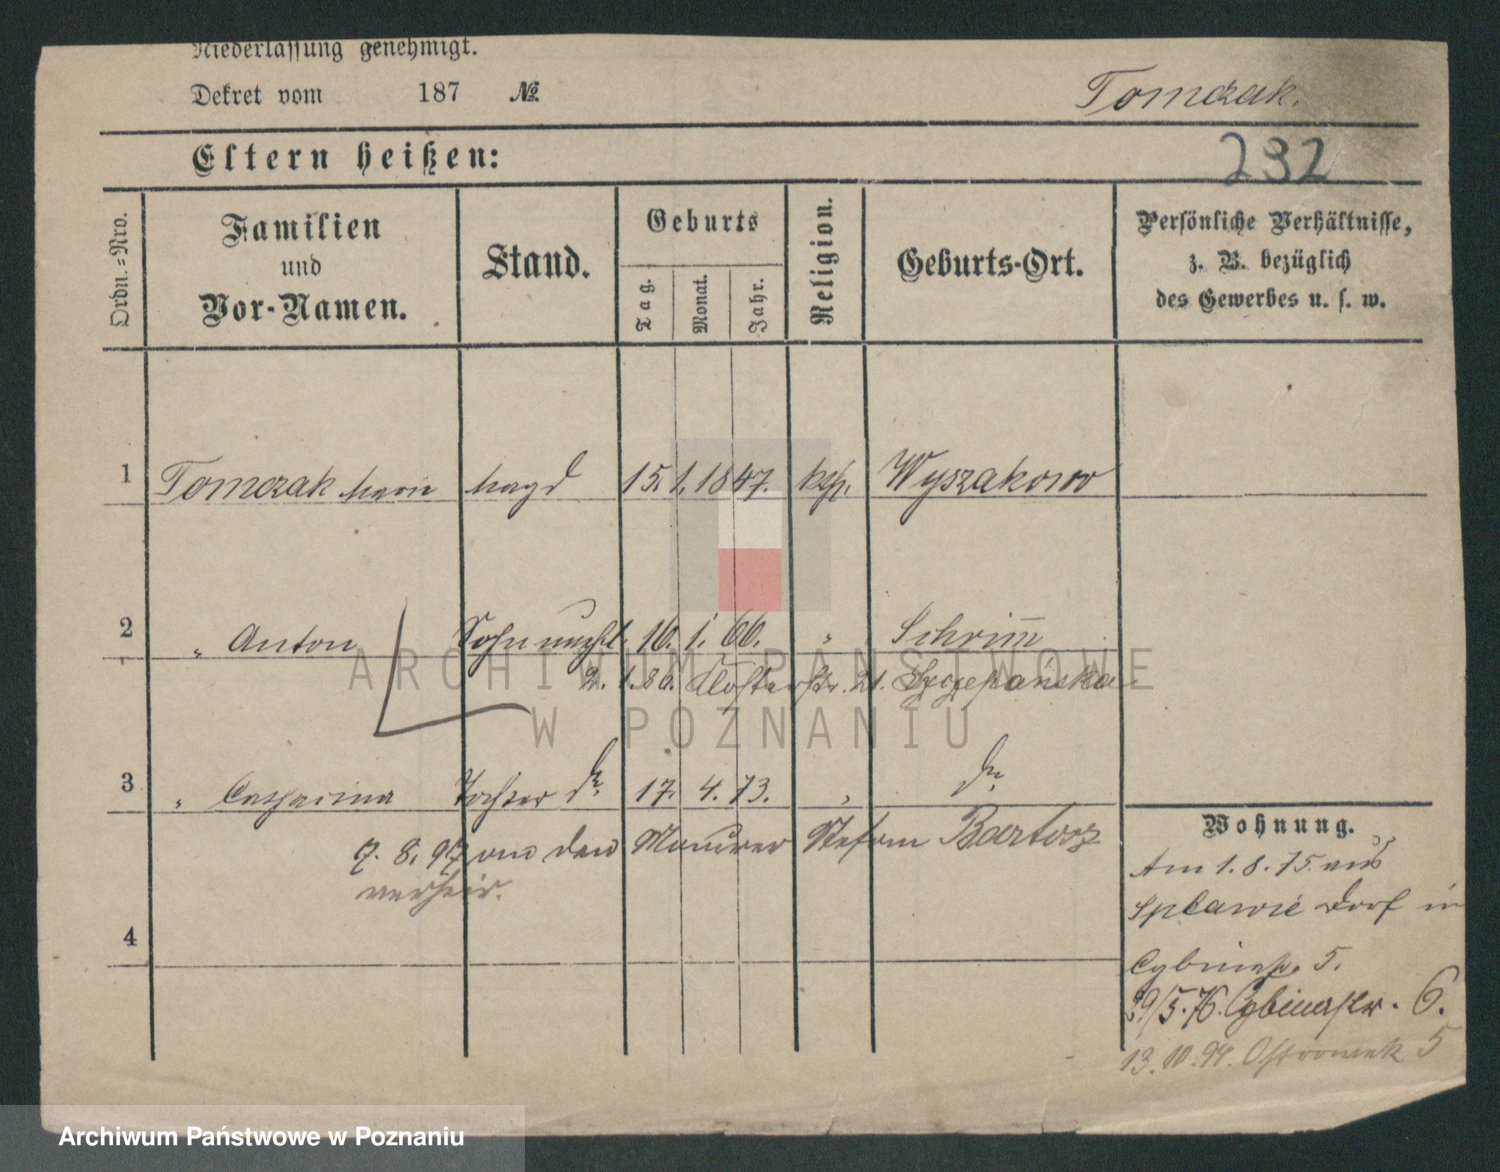 Niederlassung genehmigt.
Dekret vom 187 №
Tomczak.
232
Eltern heißen:
Ordn.-Nro.
Familien und Vor-Namen.
Stand.
Geburts
Tag.
Monat.
Jahr.
Religion.
Geburts-Ort.
Persönliche Verhältnisse,
z. B. bezüglich
des Gewerbes u. s. w.
1 Tomczak Marie Magd 15. 1. 1847. kth. Wyszakowo
2 " Anton Sohn unehl. 16. 1. 66. " Schrim̅
2. 1. 86. Klosterstr. 21. Szczepańska
3 " Catharina Tochter do. 17. 4. 73. " do.
7. 8. 97 von den Maurer Stefan Bartosz
verheir.
4
Wohnung.
Am 1. 8. 75. aus
Splawie Dorf in
Cybinastr. 5.
29/5. 76. Cybinastr. 6.
13. 10. 94. Ostrowek 5
ARCHIWUM PAŃSTWOWE
W POZNANIU
Archiwum Państwowe w Poznaniu